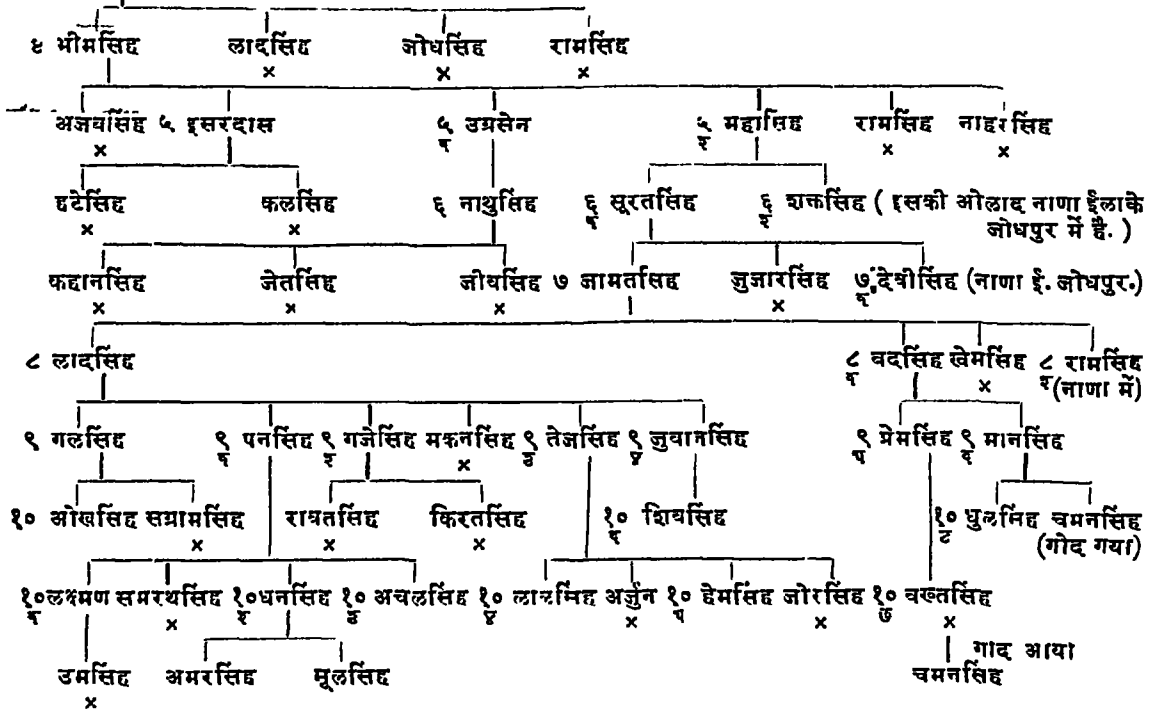 ४ भीमसिंह लादसिंह जोधसिंह रामसिंह
× × ×
अजबसिंह ५ इसरदास ५/१ उग्रसेन ५/२ महासिंह रामसिंह नाहरसिंह
× × ×
हटेसिंह फलसिंह ६ नाथुसिंह ६/१ सूरतसिंह ६/२ शक्तसिंह ( इसकी ओलाद नाणा ईलाके
× × जोधपुर में है. )
कहानसिंह जेतसिंह जीथसिंह ७ जामतसिंह जुजारसिंह ७/१ देवीसिंह (नाणा ई. जोधपुर.)
× × × ×
८ लादसिंह ८/१ वदसिंह खेमसिंह ८/२ रामसिंह
× (नाणा में)
९ गलसिंह ९/१ पनसिंह ९/२ गजेसिंह मकनसिंह ९/३ तेजसिंह ९/४ जुवानसिंह ९/५ प्रेमसिंह ९/६ मानसिंह
×
१० ओखसिंह सग्रामसिंह रावतसिंह किरतसिंह १०/६ शिवसिंह १०/८ धुलसिंह चमनसिंह
× × × (गोद गया)
१०/१ लक्ष्मण समरथसिंह १०/२ धनसिंह १०/३ अचलसिंह १०/४ लालसिंह अर्जुन १०/५ हेमसिंह जोरसिंह १०/७ वख्तसिंह
× × × ×
गोद आया
उमसिंह अमरसिंह मूलसिंह चमनसिंह
×